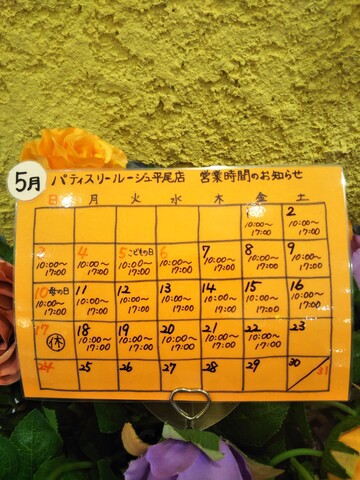 5月
パティスリールージュ平尾店 営業時間のお知らせ
日 月 火 水 木 金 土
1 2
10:00～ 10:00～
17:00 17:00
3 4 5 こどもの日 6 7 8 9
10:00～ 10:00～ 10:00～ 10:00～ 10:00～ 10:00～ 10:00～
17:00 17:00 17:00 17:00 17:00 17:00 17:00
10 母の日 11 12 13 14 15 16
10:00～ 10:00～ 10:00～ 10:00～ 10:00～ 10:00～ 10:00～
17:00 17:00 17:00 17:00 17:00 17:00 17:00
17 18 19 20 21 22 23
休 10:00～ 10:00～ 10:00～ 10:00～ 10:00～
17:00 17:00 17:00 17:00 17:00 17:00
24 25 26 27 28 29 30 31